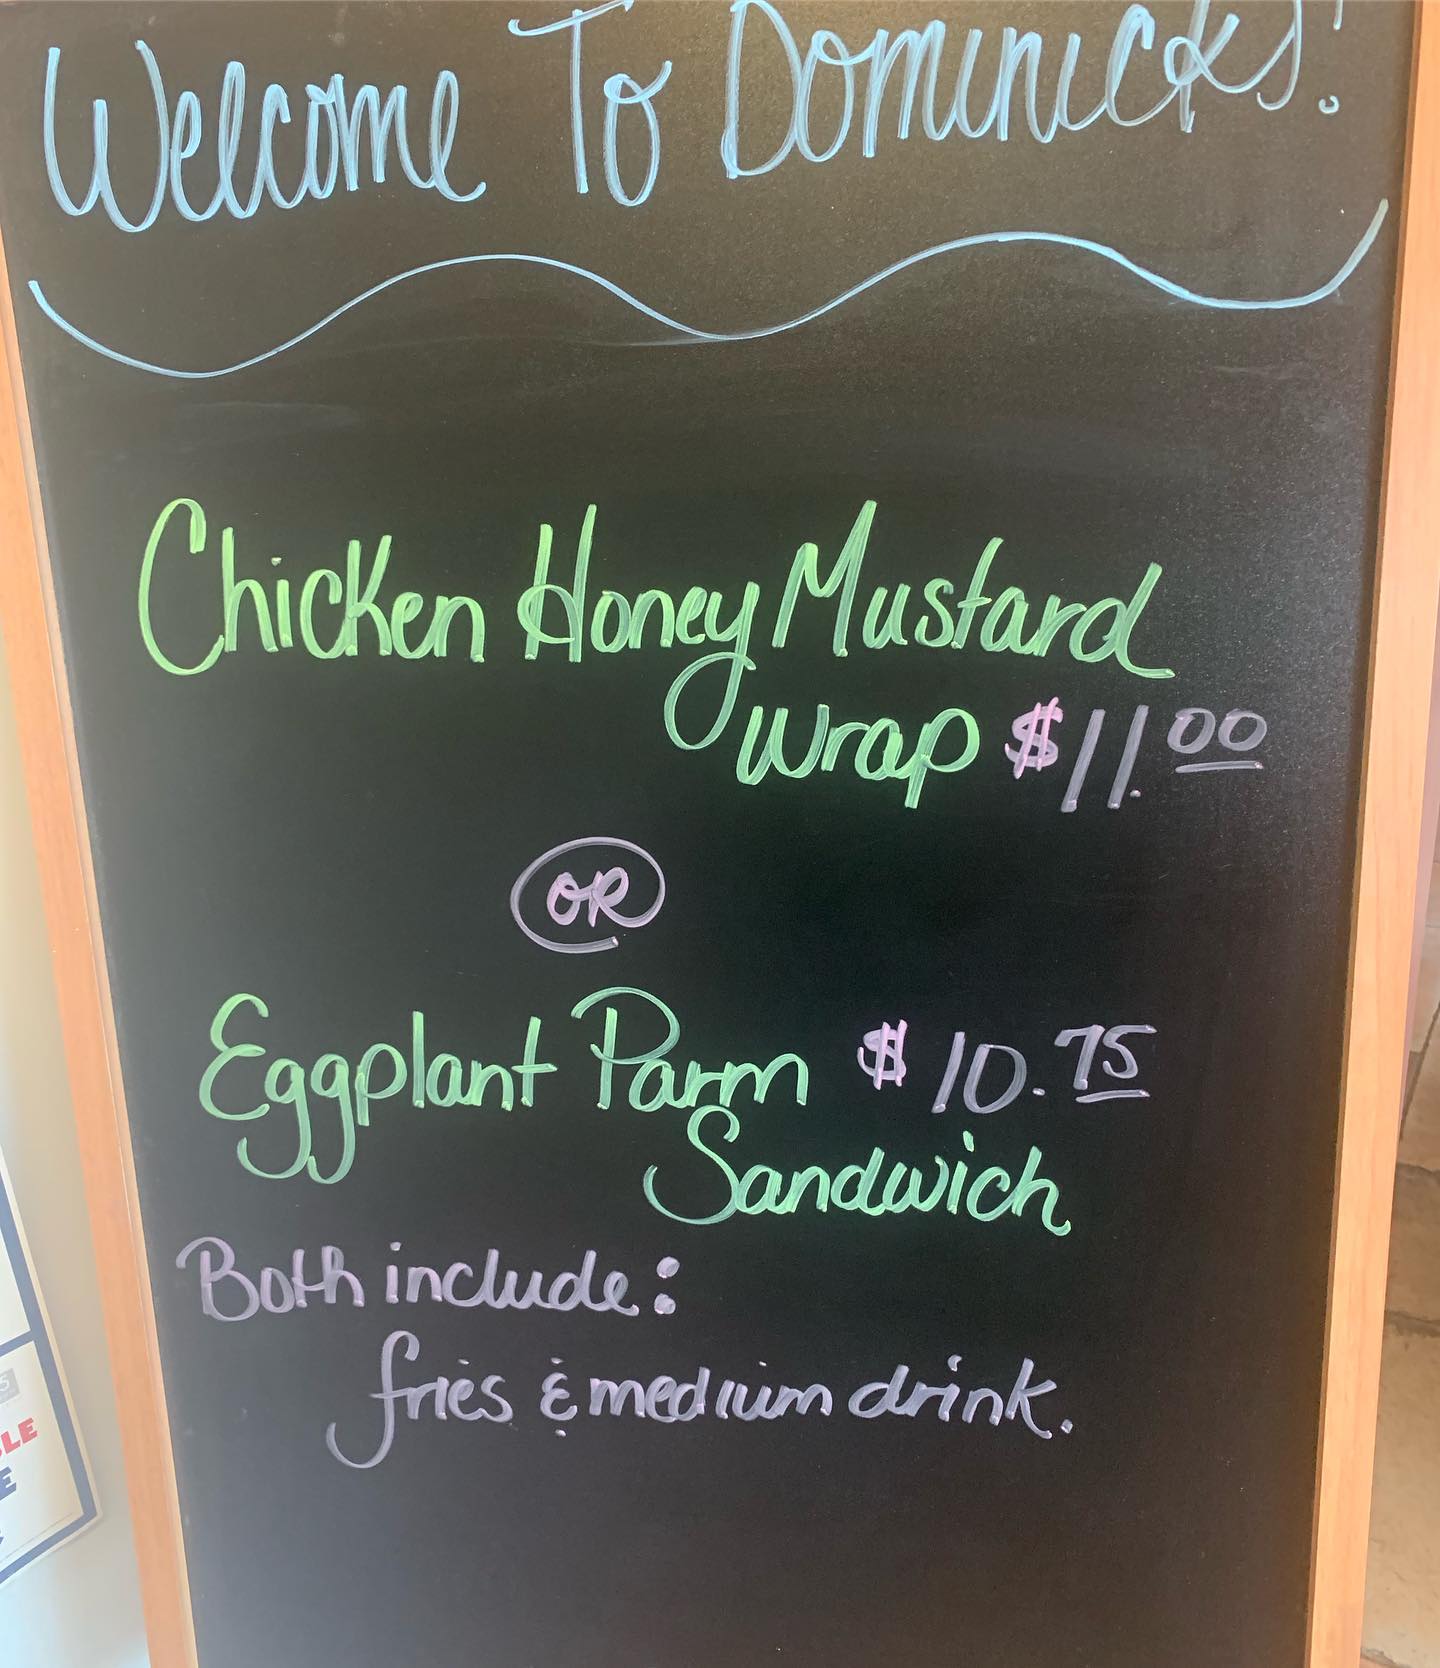 Welcome To Dominicks!
Chicken Honey Mustard
Wrap $11.00
OR
Eggplant Parm $10.75
Sandwich
Both include:
fries & medium drink.
5
LE
E